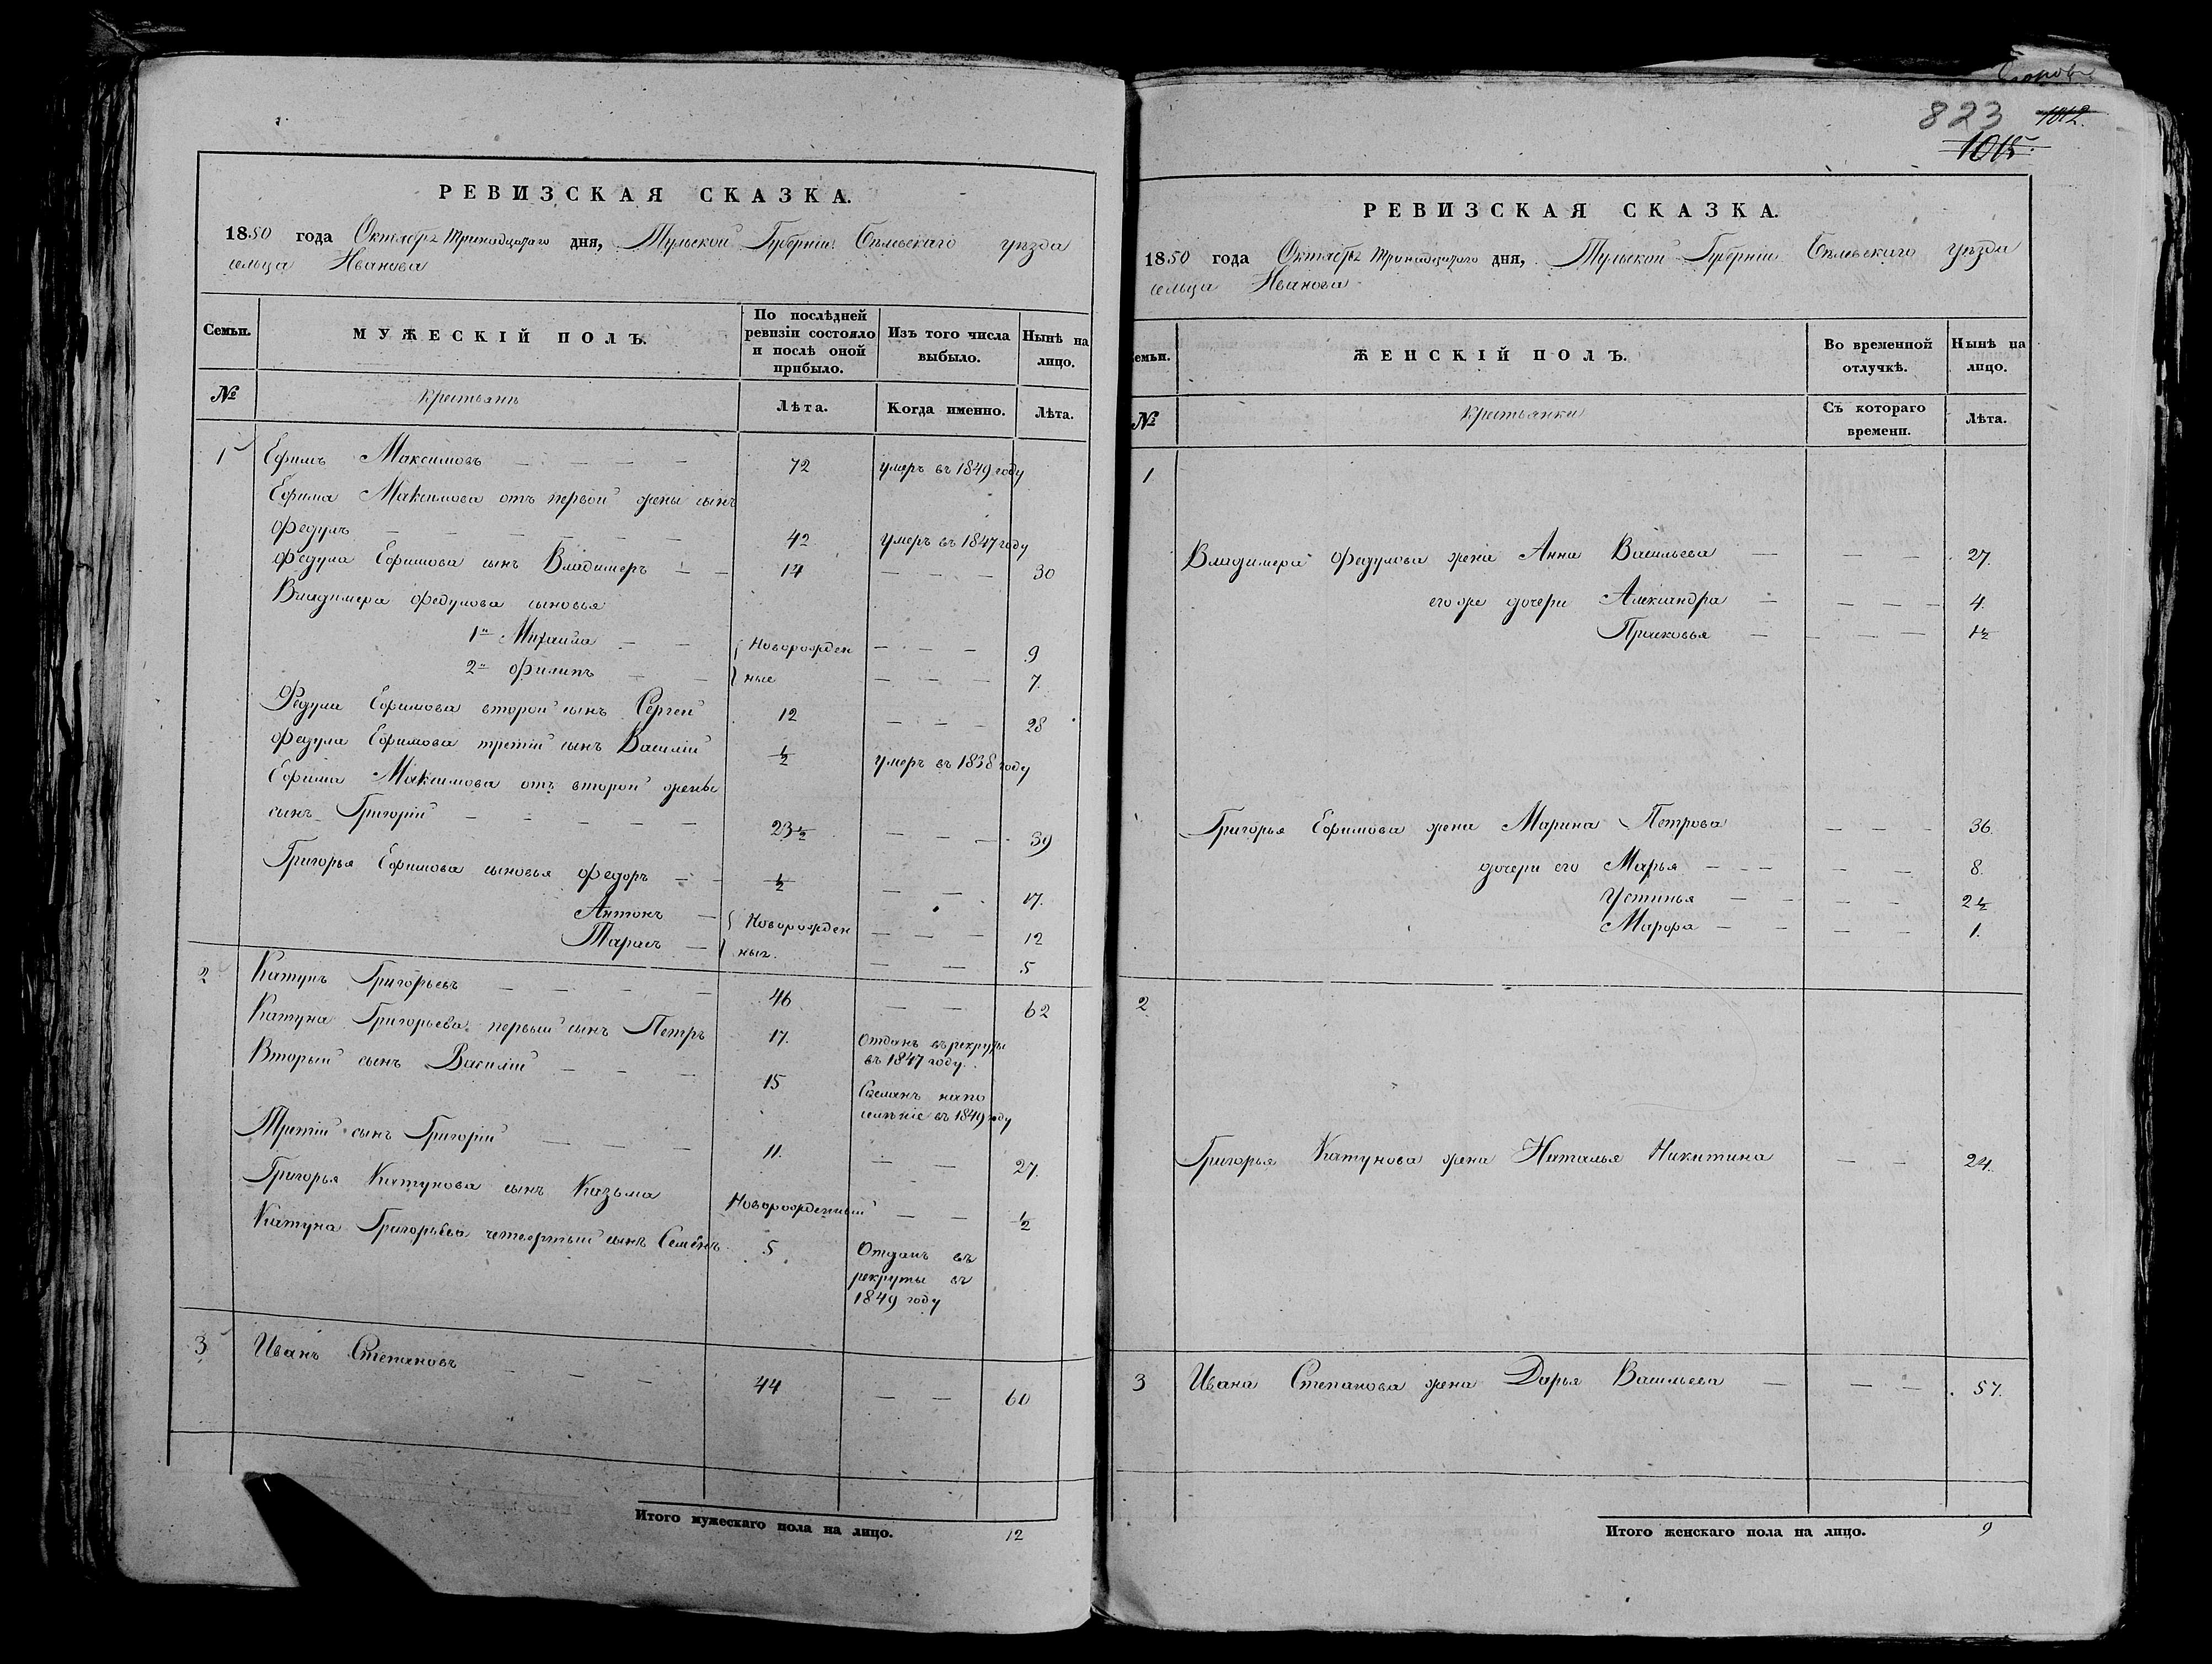 РЕВИЗСКАЯ СКАЗКА.
1850 года Октября тринадцатаго дня, Тульской Губерніи Бѣлевскаго уѣзда
сельца Иванова
Семьи.
МУЖЕСКІЙ ПОЛЪ.
По послѣдней ревизіи состояло и послѣ оной прибыло.
Изъ того числа выбыло.
Нынѣ на лицо.
№
Крестьянъ
Лѣта.
Когда именно.
Лѣта.
1 Ефимъ Максимовъ — — — — 72 умеръ въ 1849 году
Ефима Максимова отъ первой жены сынъ
Федулъ — — — — — 42 умеръ въ 1847 году
Федула Ефимова сынъ Владимеръ — — 14 — — — 30
Владимера Федулова сыновья
1й Михаила — — Новорожден — — — 9
2й Филипъ — — ные — — — 7.
Федула Ефимова второй сынъ Сергей 12 — — — 28
Федула Ефимова третій сынъ Василій ½ умеръ въ 1838 году
Ефима Максимова отъ второй жены
сынъ Григорій — — — — — 23½ — — — 39
Григорья Ефимова сыновья Федоръ — — ½ — — 17.
Антонъ — Новорожден — — — 12
Тарасъ — ныя. — — 5
2 Катунъ Григорьевъ — — — — 46 — — 62
Катуна Григорьева первый сынъ Петръ 17. Отданъ въ рекруты
въ 1847 году.
Вторый сынъ Василій — — — 15 Сосланъ на по
селѣніе въ 1849 году
Третій сынъ Григорій — — — 11. — — 27.
Григорья Катунова сынъ Казьма Новорожденный — — ½
Катуна Григорьева четвертый сынъ Семёнъ 5 Отданъ въ
рекруты въ
1849 году
3 Иванъ Степановъ — — — 44 — — 60
Итого мужескаго пола на лицо. 12
823 1012.
1015.
РЕВИЗСКАЯ СКАЗКА.
1850 года Октября тринадцатаго дня, Тульской Губерніи Бѣлевскаго уѣзда
сельца Иванова
емьи.
ЖЕНСКІЙ ПОЛЪ.
Во временной отлучкѣ.
Нынѣ на лицо.
№
Крестьянки
Съ котораго времени.
Лѣта.
1
Владимера Федулова жена Анна Васильева — — — 27.
его же дочери Александра — — — — 4.
Прасковья — — — — 1½
Григорья Ефимова жена Марина Петрова — — — 36.
дочери его Марья — — — — — 8.
Устинья — — — — 2½
Марфа — — — — 1.
2
Григорья Катунова жена Наталья Никитина — — 24.
3 Ивана Степанова жена Дарья Васильева — — — 57.
Итого женскаго пола на лицо. 9